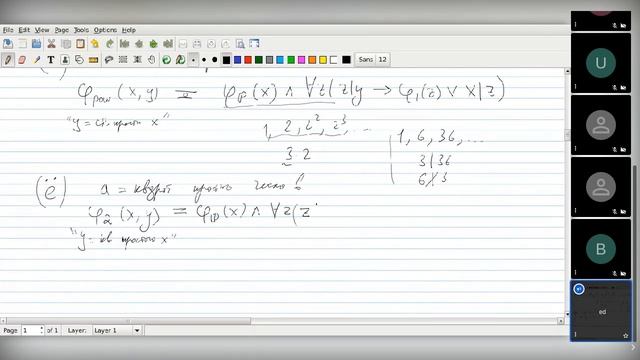 File Edit View Page Tools Options Help
Sans 12
φpow (x, y) = φℙ(x) ∧ ∀z(z|y → φ₁(z) ∨ x|z)
"y = ст. прост x"
1, 2, z², z³, ...
3·2
1, 6, 36, ...
3|36
6∤3
(ё) a = квадрат простого числа b
φ₂(x, y) = φℙ(x) ∧ ∀z(z
"y = кв простого x"
U
B
ed
Page 1 of 1 Layer: Layer 1